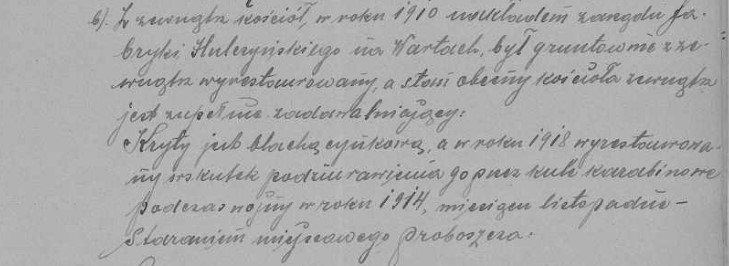 6). Z zewnątrz kościół, w roku 1910 nakładem zarządu fa-
bryki Hulczyńskiego na Wartach, był gruntownie z ze-
wnątrz wyrestaurowany, a stan obecny kościoła zewnątrz
jest zupełnie zadawalniający.
Kryty jest blachą cynkową, a w roku 1918 wyrestaurowa-
ny wskutek podziurawienia go przez kule karabinowe
podczas wojny w roku 1914, miesiącu listopadzie -
Staraniem miejscowego proboszcza.